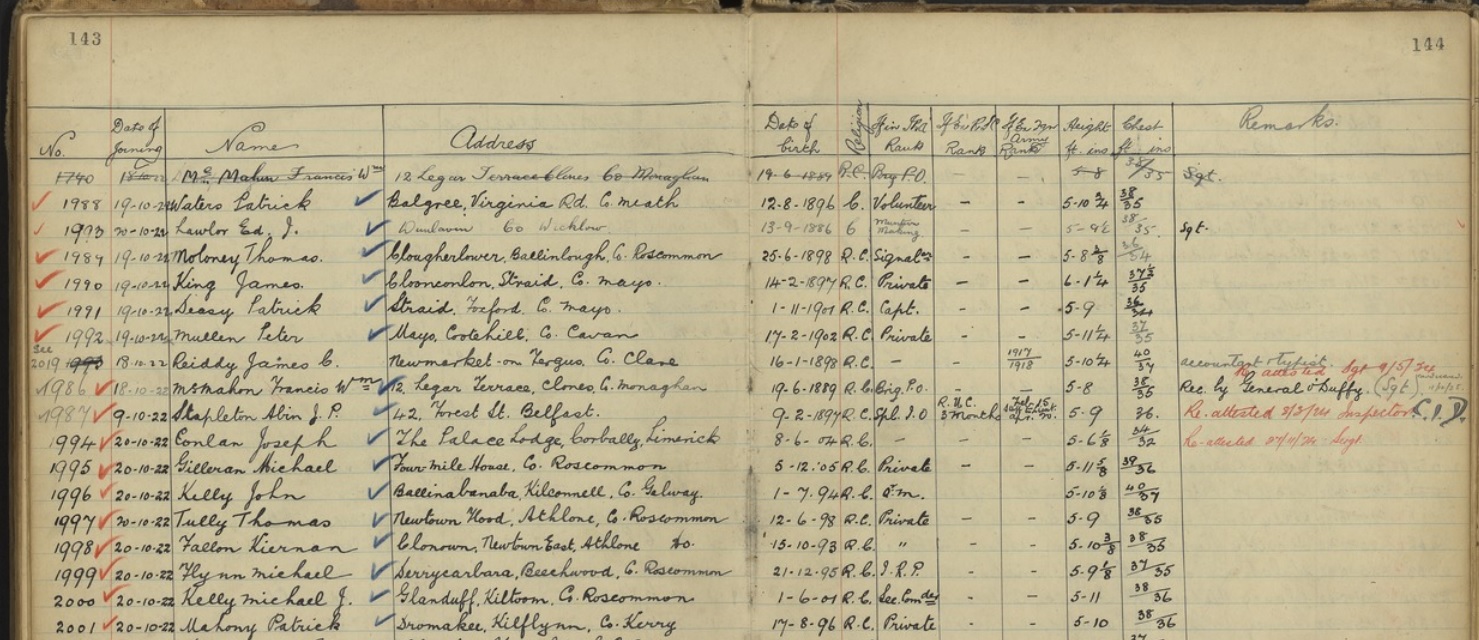 143
144
No. Date of Joining Name Address Date of birth Religion If in IRA Rank If in R.I.C. Rank Army Rank Height ft. ins Chest ft. ins Remarks.
1740 Mahon Francis Wm 12 Legar Terrace Clones Co Monaghan 19-6-1889 R.C. Brig P.O. 5-8 38/35 Sgt.
1988 19-10-22 Waters Patrick Balgree, Virginia Rd. Co. Meath 12-8-1896 C. Volunteer - - 5-10¾ 38/35
1993 20-10-22 Lawlor Ed. J. Dunlavin Co Wicklow 13-9-1886 C Munition Making - - 5-9½ 38/35. Sgt.
1989 19-10-22 Moloney Thomas. Clougherlower, Ballinlough, Co. Roscommon 25-6-1898 R.C. Signaler - - 5-8⅜ 36/34
1990 19-10-22 King James. Cloonconlon, Straid, Co. Mayo. 14-2-1897 R.C. Private - - 6-1¼ 37½/35
1991 19-10-22 Deasy Patrick Straid, Foxford, Co. Mayo. 1-11-1901 R.C. Capt. - - 5-9 36/34
1992 19-10-22 Mullen Peter Mayo, Cootehill, Co. Cavan 17-2-1902 R.C. Private - - 5-11¼ 37/35
See 2019 1993 18-10-22 Reiddy James C. Newmarket-on-Fergus, Co. Clare 16-1-1898 R.C. - - 1917/1918 5-10¼ 40/37 accountant & typist. Re attested Sgt 9/5/24
1986 18-10-22 McMahon Francis Wm 12 Legar Terrace, Clones, Co. Monaghan 19-6-1889 R.C. Brig. P.O. - - 5-8 38/35 Rec. by General O'Duffy. (Sgt)
1987 9-10-22 Stapleton Abin J.P. 42, Forest St. Belfast. 9-2-1897 R.C. Spl. I.O R.U.C. 3 Months 5-9 36. Re-attested 3/3/24 Inspector. C.I.D.
1994 20-10-22 Conlan Joseph The Palace Lodge, Corbally, Limerick 8-6-04 R.C. - - - 5-6⅛ 34/32 Re-attested 27/11/24 Sergt.
1995 20-10-22 Gilleran Michael Four-mile House, Co. Roscommon 5-12-05 R.C. Private - - 5-11⅝ 39/36
1996 20-10-22 Kelly John Ballinabanaba, Kilconnell, Co. Galway. 1-7-94 R.C. Q.M. 5-10⅛ 40/37
1997 20-10-22 Tully Thomas Newtown Hood, Athlone, Co. Roscommon 12-6-98 R.C. Private - - 5-9 38/35
1998 20-10-22 Fallon Kiernan Clonown, Newtown East, Athlone do. 15-10-93 R.C. " - - 5-10⅜ 38/35
1999 20-10-22 Flynn Michael Derrycarbara, Beechwood, Co. Roscommon 21-12-95 R.C. I.R.P. - - 5-9⅛ 37/35
2000 20-10-22 Kelly Michael J. Glanduff, Kiltoom, Co. Roscommon 1-6-01 R.C. Sec. Comdr - - 5-11 38/36
2001 20-10-22 Mahony Patrick Dromakee, Kilflynn, Co. Kerry 17-8-96 R.C. Private - - 5-10 38/36